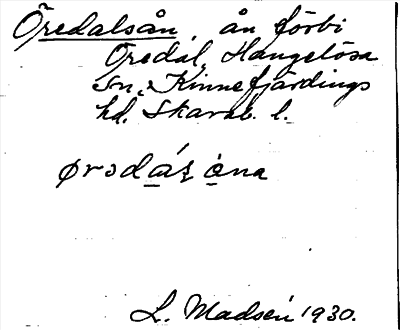 Öredalsån, ån förbi
Öredal, Hangelösa
sn, Kinnefjärdings
hd. Skarab. l.
ørɘdáʂ ɑ̀na
L. Madsén 1930.